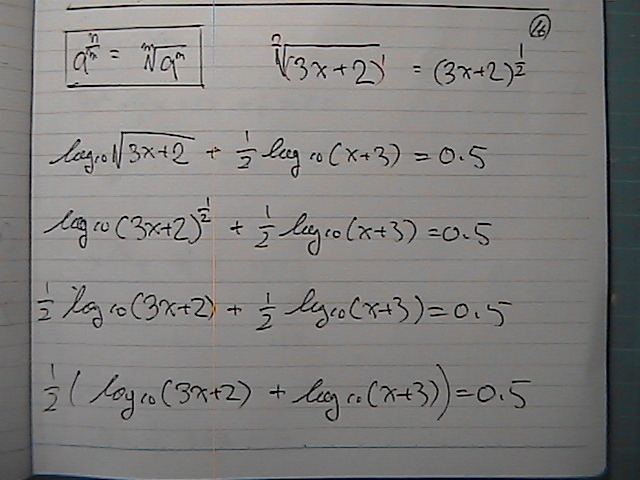 16
a^(n/m) = ᵐ√(aⁿ)
²√(3x+2)¹ = (3x+2)^(1/2)
log₁₀√(3x+2) + 1/2 log₁₀(x+3) = 0.5
log₁₀(3x+2)^(1/2) + 1/2 log₁₀(x+3) = 0.5
1/2 log₁₀(3x+2) + 1/2 log₁₀(x+3) = 0.5
1/2 (log₁₀(3x+2) + log₁₀(x+3)) = 0.5